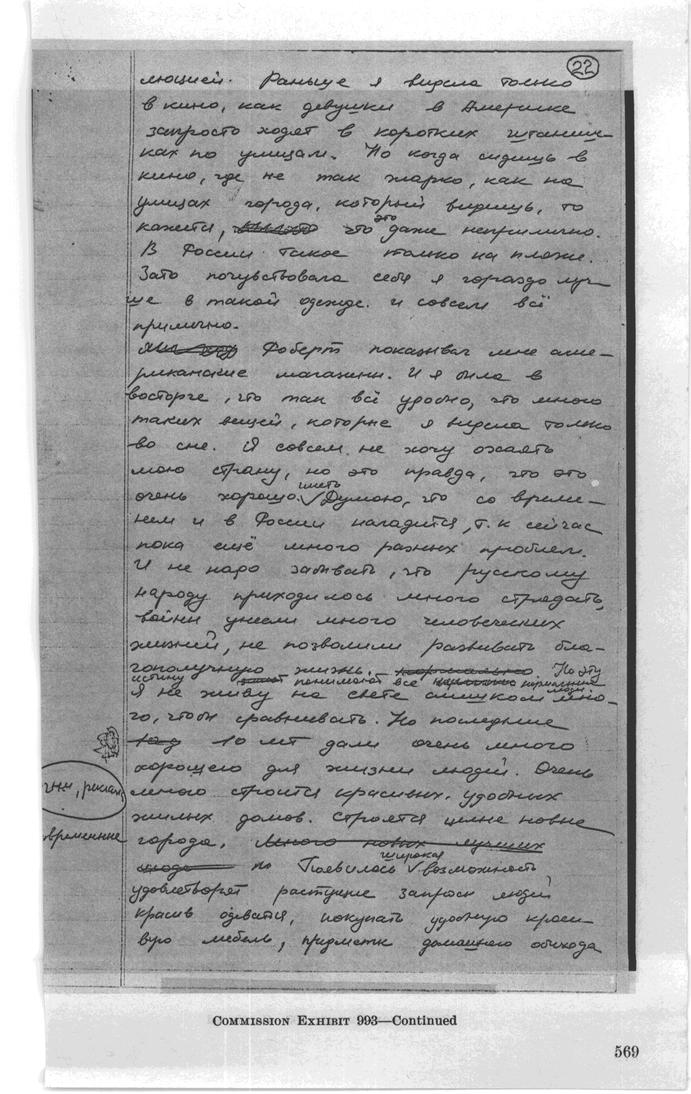 22
люцией. Раньше я видела только
в кино, как девушки в Америке
запросто ходят в коротких штаниш-
ках по улицам. Но когда сидишь в
кино, где не так жарко, как на
улицах города, который видишь, то
кажется, что это даже неприлично.
В России такое только на пляже.
Зато почувствовала себя я гораздо луч-
ше в такой одежде. и совсем всё
прилично.
Роберт показывал мне аме-
риканские магазины. И я была в
восторге, что так всё удобно, что много
таких вещей, которые я видела только
во сне. Я совсем не хочу охаять
мою страну, но это правда, что это
очень хорошо иметь. Думаю, что со време-
нем и в России наладится, т.к сейчас
пока ещё много разных проблем.
И не надо забывать, что русскому
народу приходилось много страдать,
войны унесли много человеческих
жизней, не позволили развивать бла-
гополучную жизнь. Но эту
истину понимают все нормальные люди
Я не живу на свете слишком мно-
го, чтобы сравнивать. Но последние
год 10 лет дали очень много
хорошего для жизни людей. Очень
много строится красивых, удобных
жилых домов. Строятся целые новые
овременные
города. Много новых лучших
Появилась широкая возможность
удовлетворят растущие запросы людей
красив одеватся, покупать удобную краси-
вую мебель, предметы домашнего обихода
COMMISSION EXHIBIT 993—Continued
569